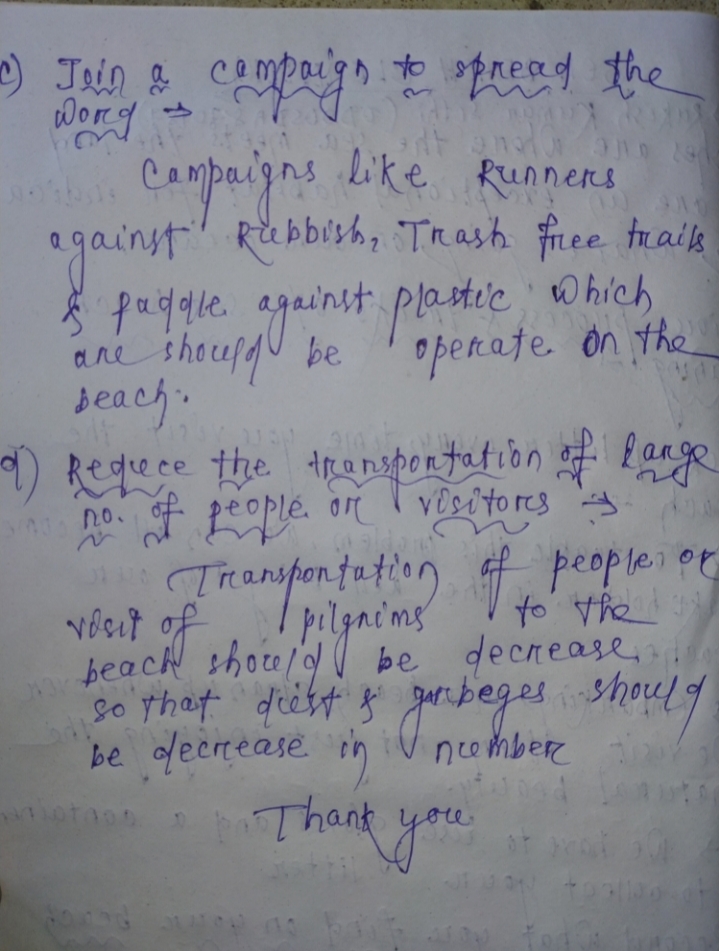 c) Join a campaign to spread the
word →
Campaigns like Runners
against Rubbish, Trash free trails
& paddle against plastic which
are should be operate on the
beach.
d) Reduce the transportation of large
no. of people or visitors →
Transportation of people or
visit of pilgrims to the
beach should be decrease.
so that dust & garbeges should
be decrease in number
Thank you